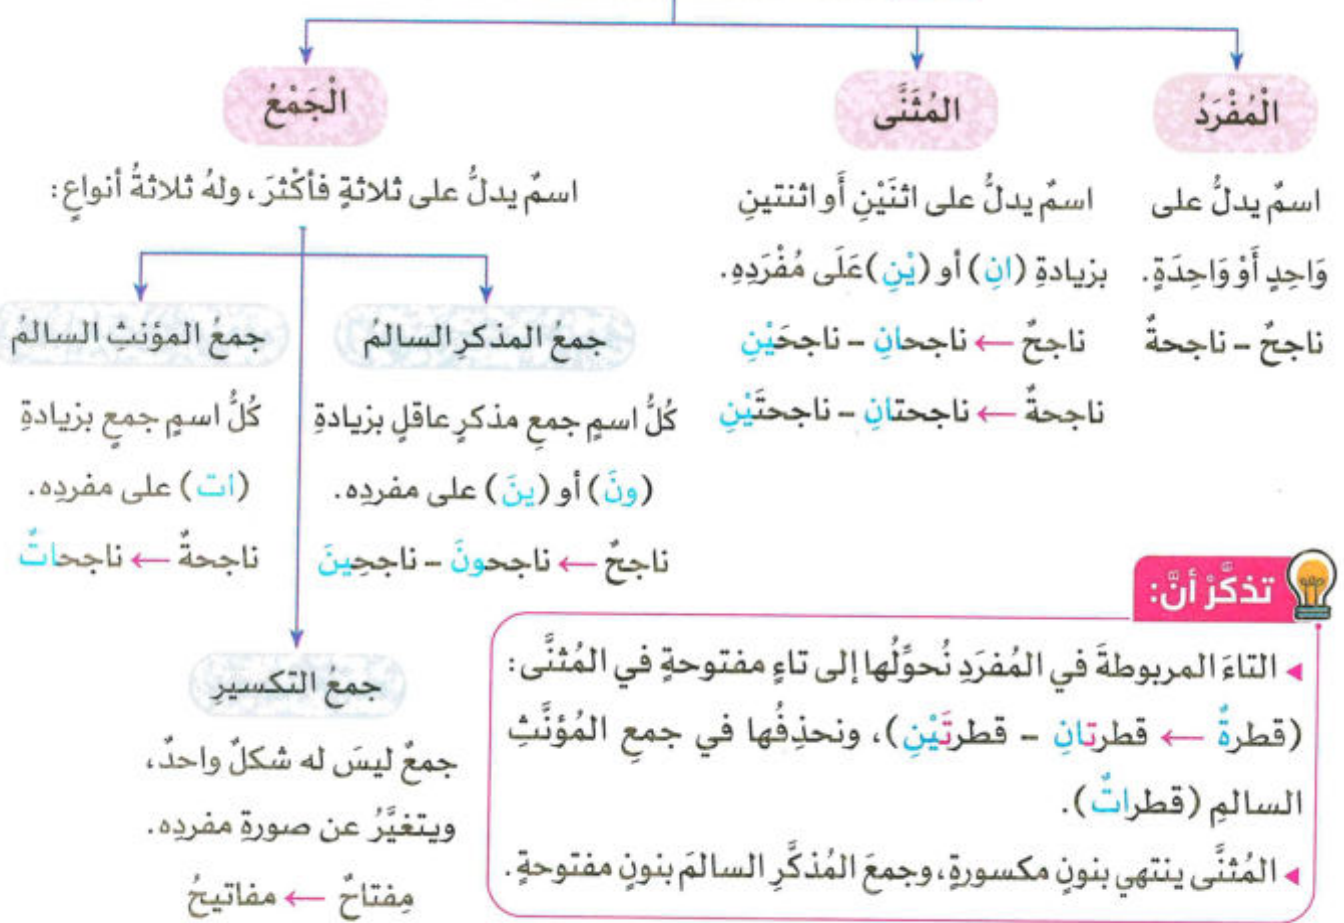 الْمُفْرَدُ
اسمٌ يدلُّ على
وَاحِدٍ أَوْ وَاحِدَةٍ.
ناجحٌ - ناجحةٌ
المُثَنَّى
اسمٌ يدلُّ على اثنَيْنِ أَو اثنتينِ
بزيادةِ (انِ) أو (يْنِ) عَلَى مُفْرَدِهِ.
ناجحٌ ← ناجحانِ - ناجحَيْنِ
ناجحةٌ ← ناجحتانِ - ناجحتَيْنِ
الْجَمْعُ
اسمٌ يدلُّ على ثلاثةٍ فأكْثرَ، ولهُ ثلاثةُ أنواعٍ:
جمعُ المذكرِ السالمُ
كُلُّ اسمٍ جمعِ مذكرٍ عاقلٍ بزيادةِ
(ونَ) أو (ينَ) على مفردِه.
ناجحٌ ← ناجحونَ - ناجحِينَ
جمعُ المؤنثِ السالمُ
كُلُّ اسمٍ جمعٍ بزيادةِ
(ات) على مفردِه.
ناجحةٌ ← ناجحاتٌ
جمعُ التكسيرِ
جمعٌ ليسَ له شكلٌ واحدٌ،
ويتغيَّرُ عن صورةِ مفردِه.
مِفتاحٌ ← مفاتيحُ
تذكَّرْ أنَّ:
التاءَ المربوطةَ في المُفرَدِ نُحوِّلُها إلى تاءٍ مفتوحةٍ في المُثنَّى:
(قطرةٌ ← قطرتانِ - قطرتَيْنِ)، ونحذِفُها في جمعِ المُؤنَّثِ
السالمِ (قطراتٌ).
المُثنَّى ينتهي بنونٍ مكسورةٍ، وجمعَ المُذكَّرِ السالمَ بنونٍ مفتوحةٍ.